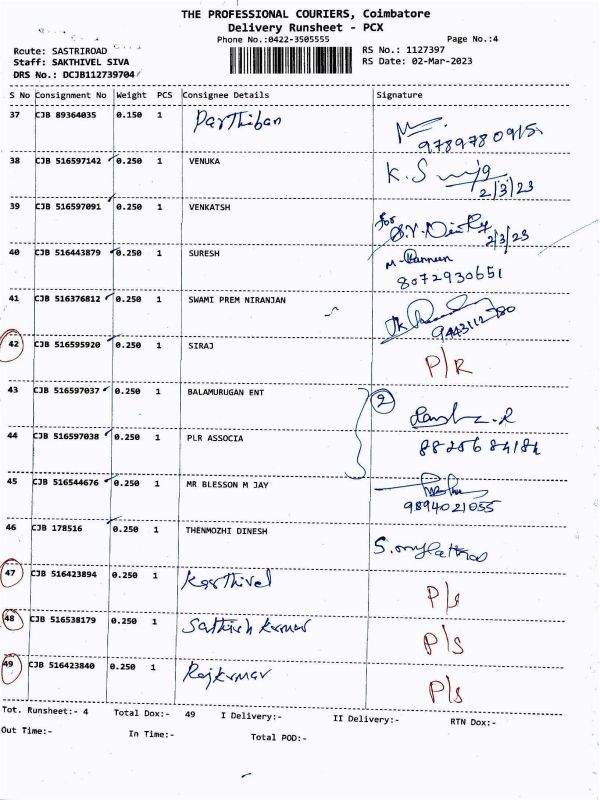 THE PROFESSIONAL COURIERS, Coimbatore
Delivery Runsheet - PCX
Phone No.:0422-3505555 Page No.:4
Route: SASTRIROAD RS No.: 1127397
Staff: SAKTHIVEL SIVA RS Date: 02-Mar-2023
DRS No.: DCJB112739704
S No Consignment No Weight PCS Consignee Details Signature
37 CJB 89364035 0.150 1 Parthiban
9789780915
38 CJB 516597142 0.250 1 VENUKA
2/3/23
39 CJB 516597091 0.250 1 VENKATSH
for
2/3/23
40 CJB 516443879 0.250 1 SURESH
8072930651
41 CJB 516376812 0.250 1 SWAMI PREM NIRANJAN
9443112780
42 CJB 516595920 0.250 1 SIRAJ P/R
43 CJB 516597037 0.250 1 BALAMURUGAN ENT 2
44 CJB 516597038 0.250 1 PLR ASSOCIA
45 CJB 516544676 0.250 1 MR BLESSON M JAY
9894021055
46 CJB 178516 0.250 1 THENMOZHI DINESH
47 CJB 516423894 0.250 1 Karthivel P/s
48 CJB 516538179 0.250 1 Sathish kumar P/s
49 CJB 516423840 0.250 1 Rajkumar P/s
Tot. Runsheet:- 4 Total Dox:- 49 I Delivery:- II Delivery:- RTN Dox:-
Out Time:- In Time:- Total POD:-